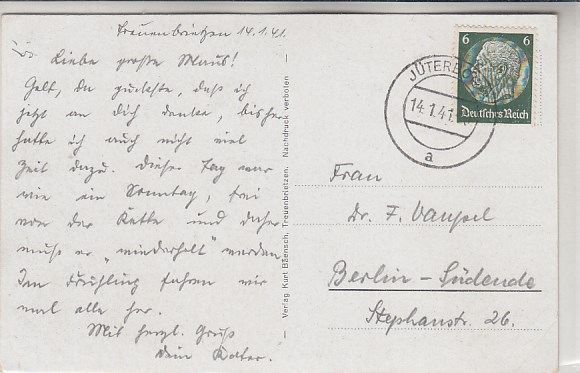 Treuenbrietzen 14.1.41.
Liebe große Maus!
Gelt, da guckste, daß ich
jetzt an dich denke, bisher
hatte ich auch nicht viel
Zeit dazu. Dieser Tag war
wie ein Sonntag, frei
von der Kette und daher
muß er „wiederholt" werden
Im Frühling fahren wir
mal alle her.
Mit herzl. Gruß
dein Kater.
— Verlag Kurt Bäensch, Treuenbrietzen. Nachdruck verboten —
6 6
Deutsches Reich
JÜTERBOG
14.1.41
a
Frau
Dr. F.
Berlin - Südende
Stephanstr. 26.